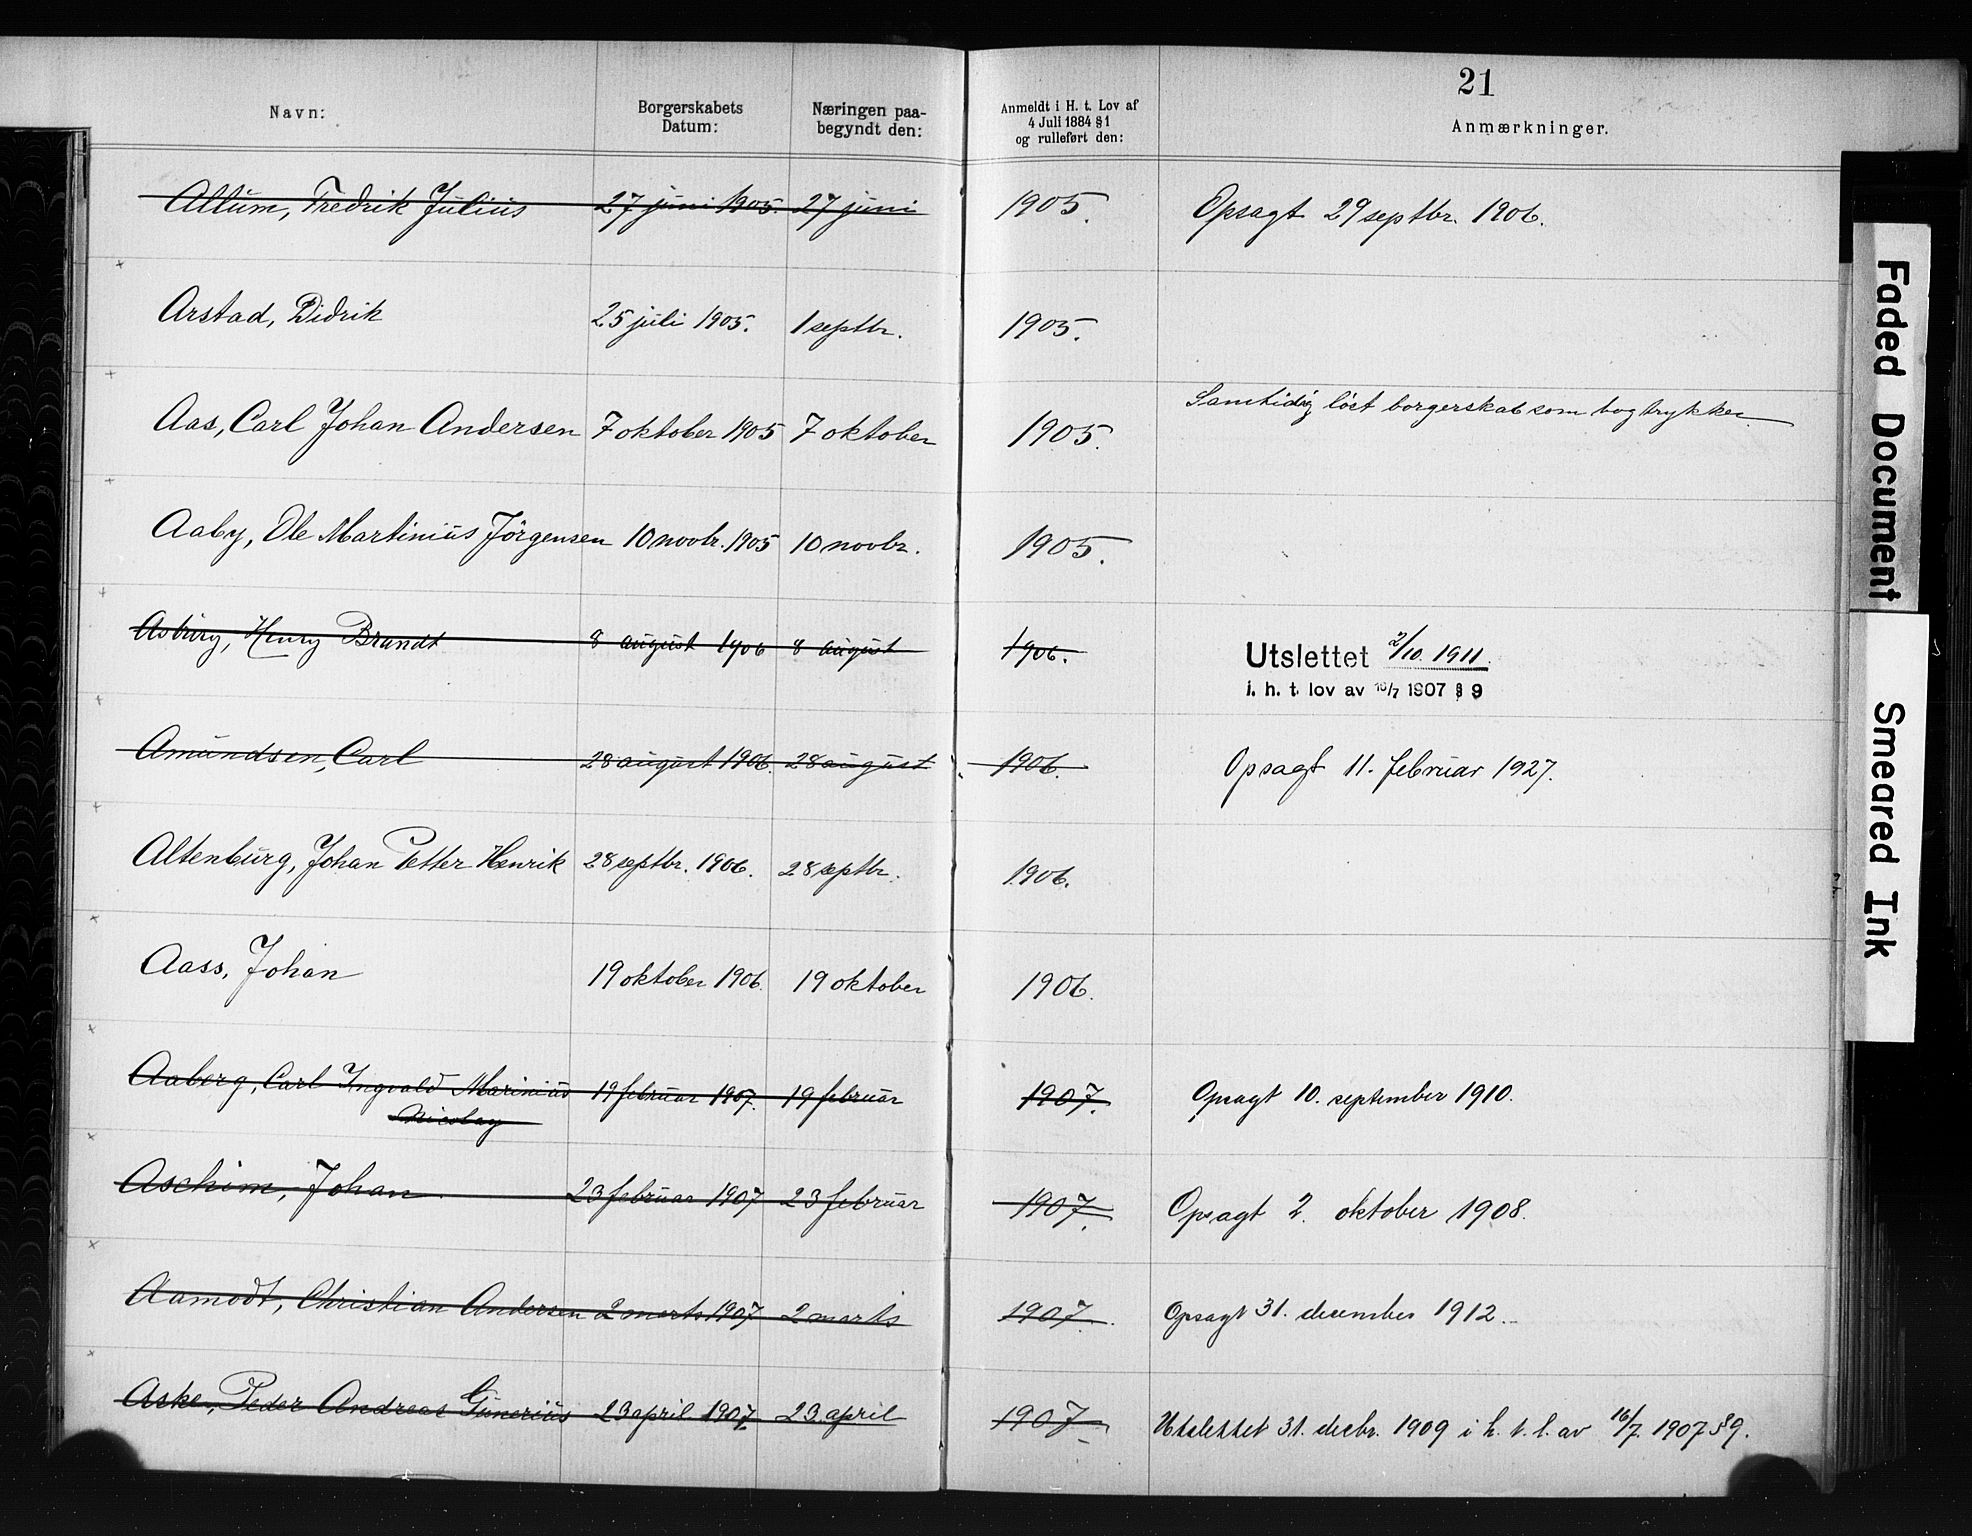 21
Navn: Borgerskabets Datum: Næringen paa-begyndt den: Anmeldt i H. t. Lov af 4 Juli 1884 § 1 og rulleført den: Anmærkninger.
Allum, Fredrik Julius 27 juni 1905. 27 juni 1905. Opsagt 29 septbr. 1906.
Arstad, Didrik 25 juli 1905. 1 septbr. 1905.
Aas, Carl Johan Andersen 7 oktober 1905 7 oktober 1905. Samtidig löst borgerskab som bogtrykker.
Aaby, Ole Martinius Jörgensen 10 novbr. 1905 10 novbr. 1905.
Asbury, Henry Brandt 8 august 1906 8 august 1906. Utslettet 2/10. 1911.
i. h. t. lov av 16/7 1907 § 9
Amundsen, Carl 28 august 1906. 28 august 1906. Opsagt 11. februar 1927.
Altenburg, Johan Petter Henrik 28 septbr. 1906. 28 septbr. 1906.
Aass, Johan 19 oktober 1906. 19 oktober 1906.
Aaberg, Carl Ingvald Marinius 19 februar 1907. 19 februar 1907. Opsagt 10. september 1910.
Nicolay
Aschim, Johan 23 februar 1907 23 februar 1907. Opsagt 2. oktober 1908.
Aamodt, Christian Andersen 2 marts 1907 2 marts 1907. Opsagt 31. december 1912.
Aske, Peder Andreas Gunerius 23 april 1907 23 april 1907. Utslettet 31. decbr. 1909 i h. t. l. av 16/7 1907 § 9.
Faded Document
Smeared Ink